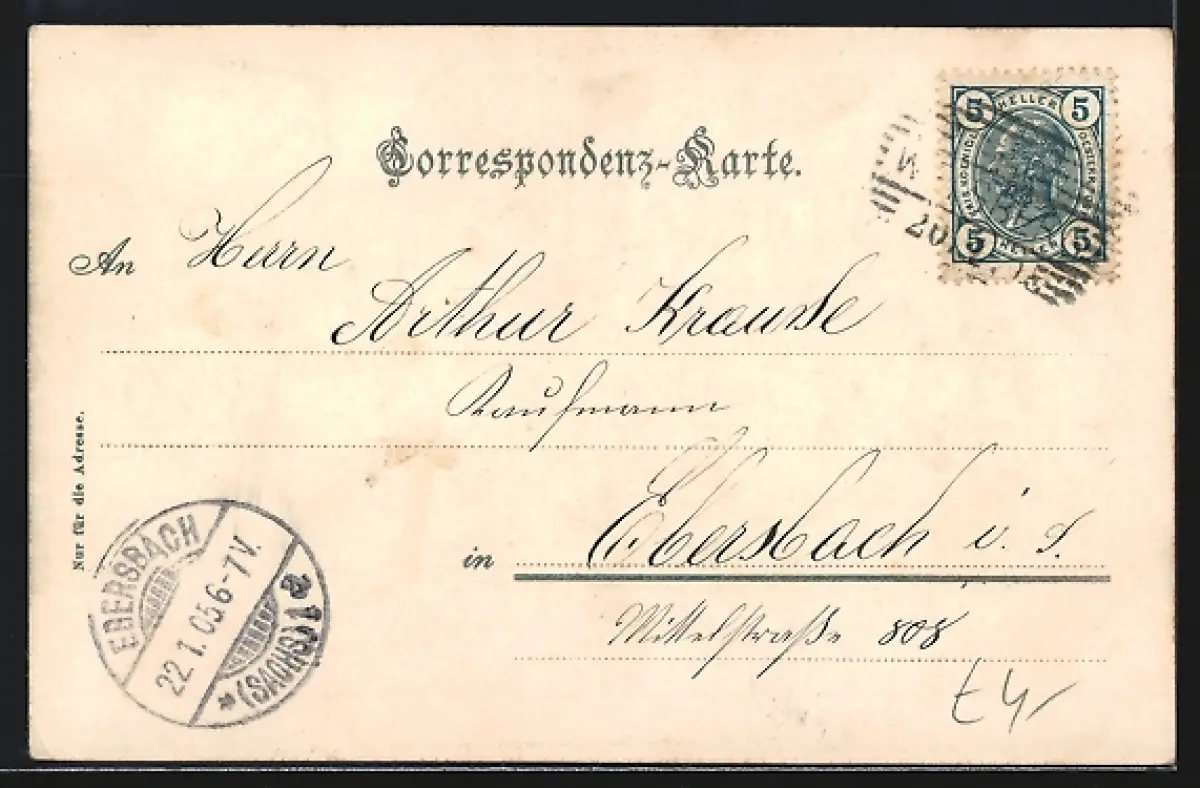 Correspondenz-Karte.
5 HELLER 5
5 HELLER 5
20
An Herrn
Arthur Krause
Kaufmann
in Ebersbach i. S.
Mittelstraße 808
Nur für die Adresse.
EBERSBACH
22.1.05 6-7V.
* (SACHS.) 1 a